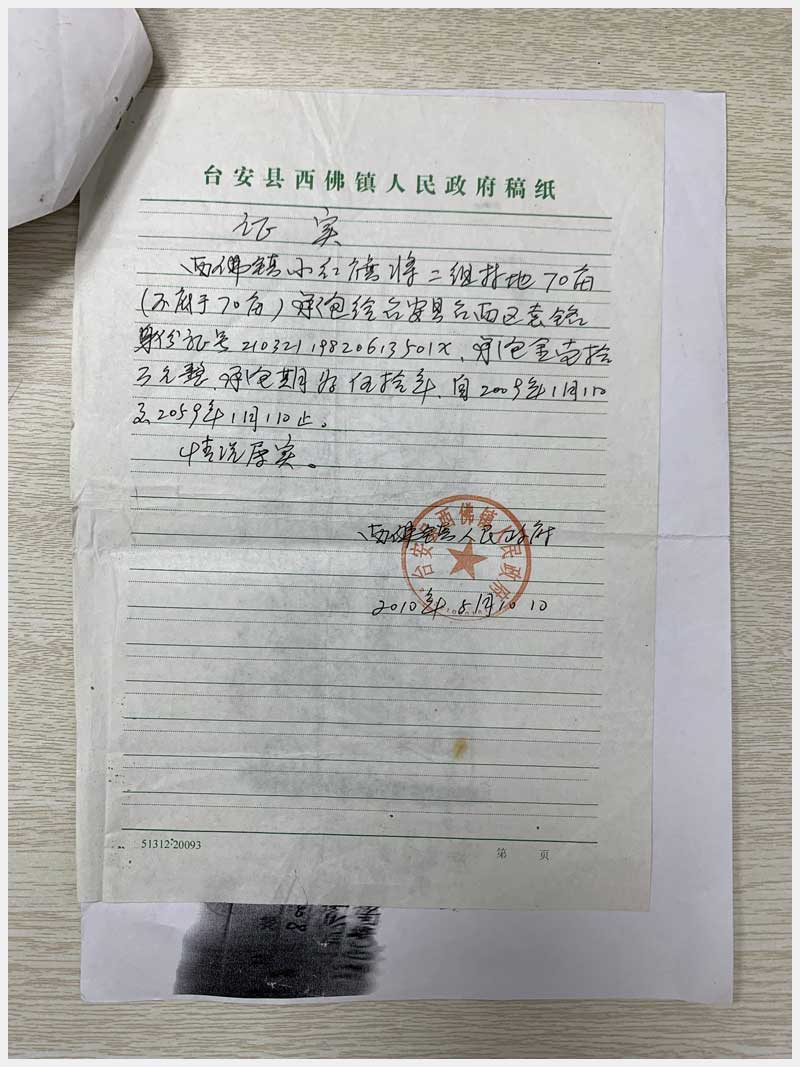 台安县西佛镇人民政府稿纸
证实
西佛镇小红旗将二组村地70亩
(不届于70亩)承包给台安县台西区袁铭
身份证号 21032119820613501X、承包金壹拾
万元整 承包期为伍拾年、自2009年1月1日
至2059年1月1日止。
情况属实。
西佛镇人民政府
台安县西佛镇人民政府
2010年5月10日
51312·20093
第 页